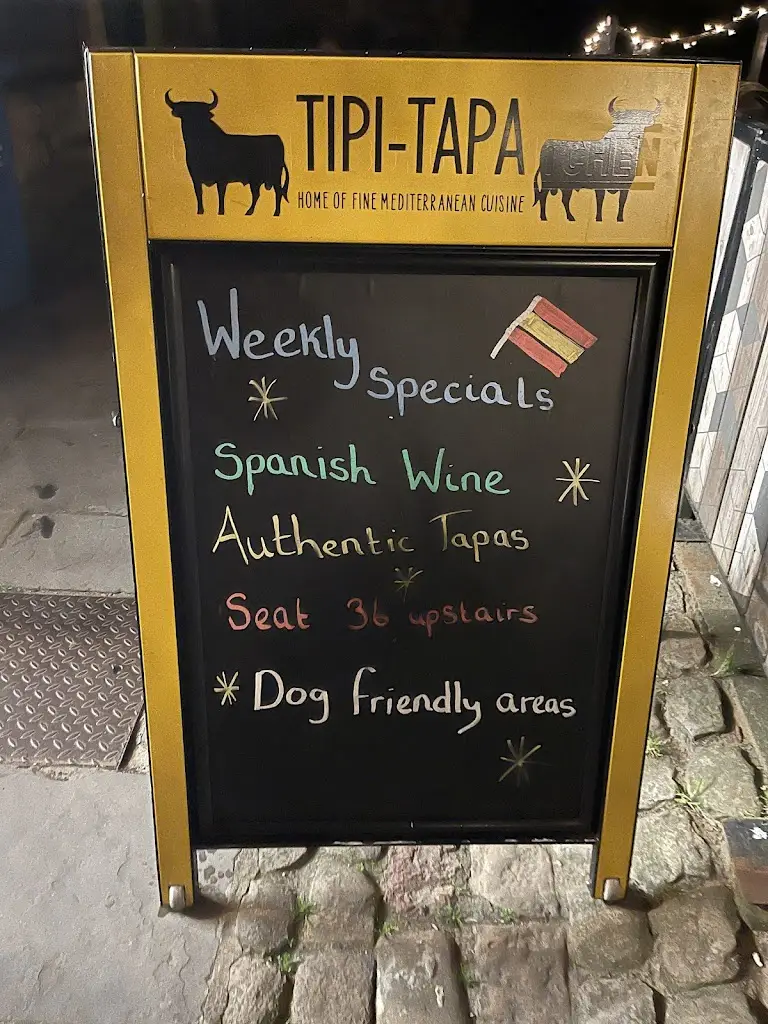 TIPI-TAPA
HOME OF FINE MEDITERRANEAN CUISINE
Weekly
Specials
Spanish Wine
Authentic Tapas
Seat 36 upstairs
Dog friendly areas